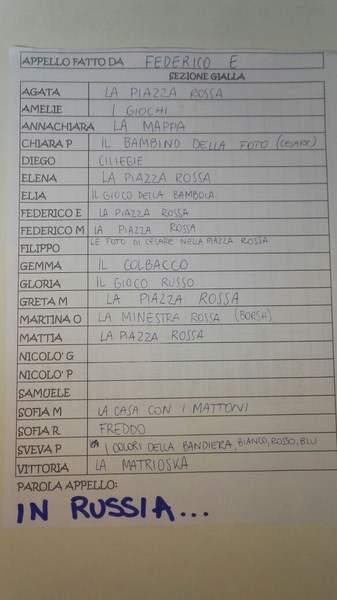 APPELLO FATTO DA FEDERICO E
SEZIONE GIALLA
AGATA LA PIAZZA ROSSA
AMELIE I GIOCHI
ANNACHIARA LA MAPPA
CHIARA P IL BAMBINO DELLA FOTO (CESARE)
DIEGO CILIEGIE
ELENA LA PIAZZA ROSSA
ELIA IL GIOCO DELLA BAMBOLA
FEDERICO E LA PIAZZA ROSSA
FEDERICO M LA PIAZZA ROSSA
FILIPPO LE FOTO DI CESARE NELLA PIAZZA ROSSA
GEMMA IL COLBACCO
GLORIA IL GIOCO RUSSO
GRETA M LA PIAZZA ROSSA
MARTINA O LA MINESTRA ROSSA (BORSH)
MATTIA LA PIAZZA ROSSA
NICOLO' G
NICOLO' P
SAMUELE
SOFIA M LA CASA CON I MATTONI
SOFIA R FREDDO
SVEVA P I COLORI DELLA BANDIERA, BIANCO, ROSSO, BLU
VITTORIA LA MATRIOSKA
PAROLA APPELLO:
IN RUSSIA...